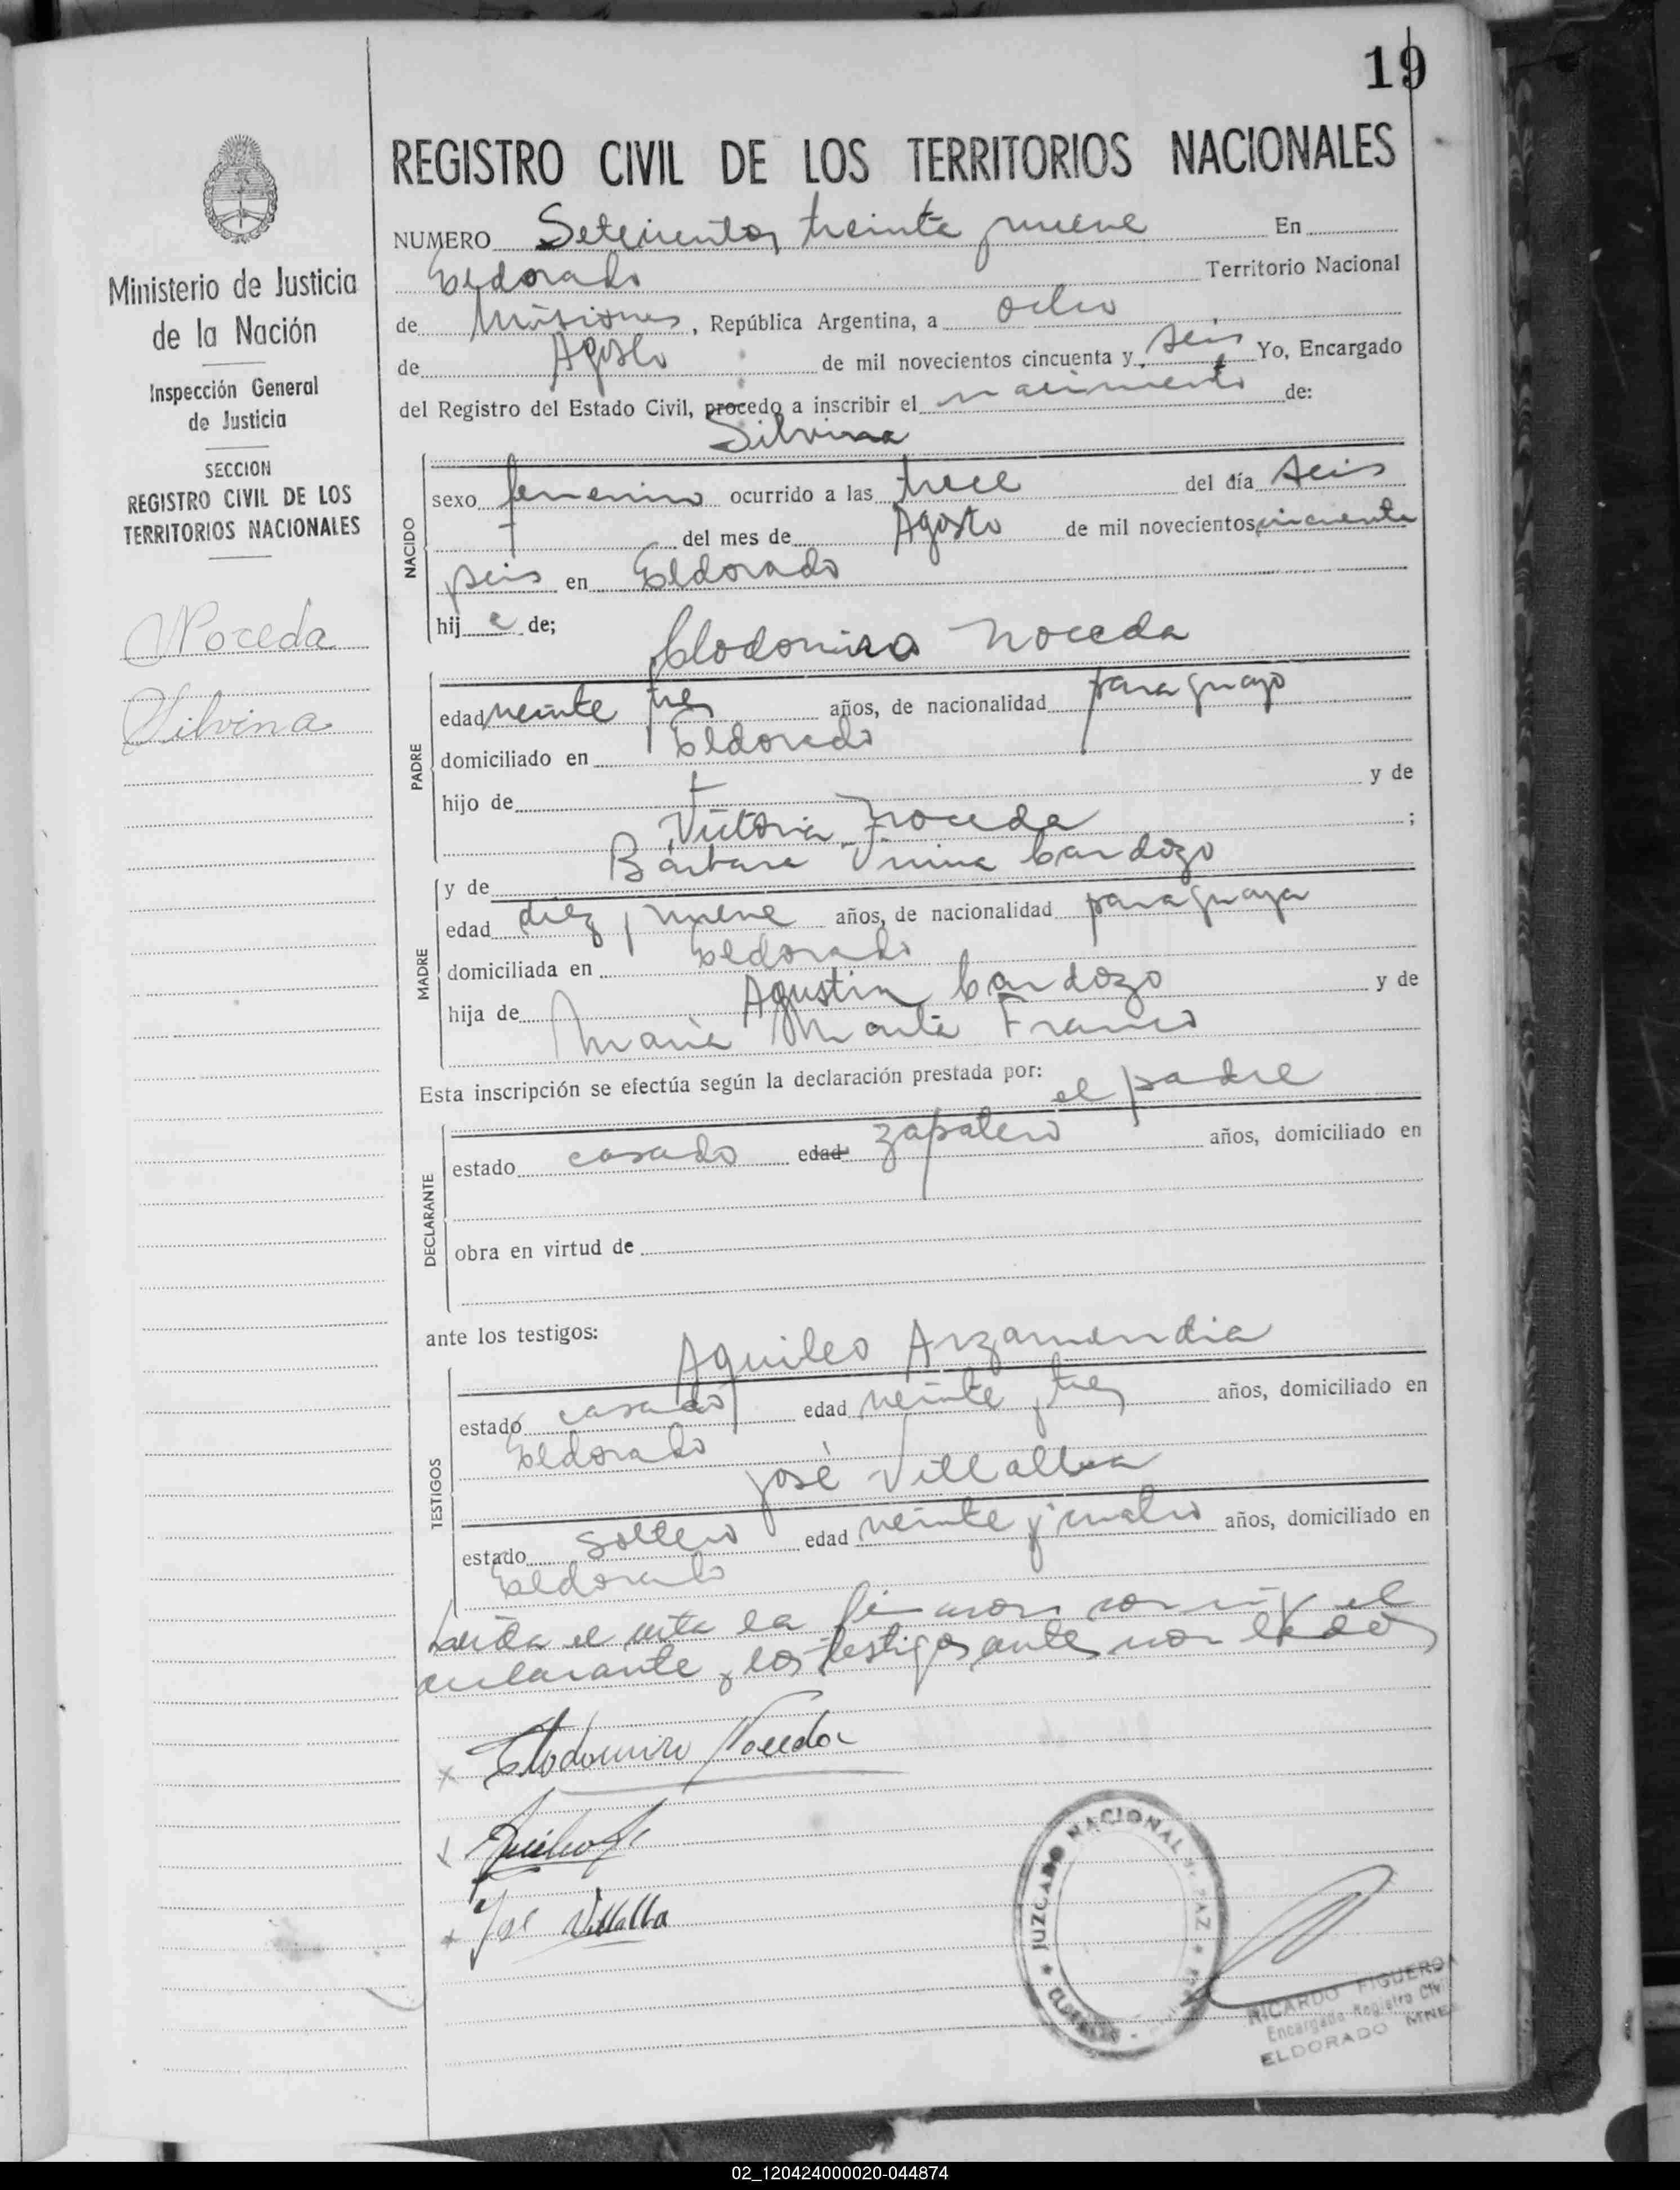 19
REGISTRO CIVIL DE LOS TERRITORIOS NACIONALES
NUMERO Setecientos treinta y nueve En
Eldorado Territorio Nacional
de Misiones, República Argentina, a ocho
de Agosto de mil novecientos cincuenta y seis Yo, Encargado
del Registro del Estado Civil, procedo a inscribir el nacimiento de:
Silvina
NACIDO
sexo femenino ocurrido a las trece del día seis
del mes de Agosto de mil novecientos cincuenta
y seis en Eldorado
hij a de;
Clodomiro Noceda
PADRE
edad veinte y tres años, de nacionalidad paraguayo
domiciliado en Eldorado
hijo de y de
Victoria Noceda ;
y de Bárbara Cardozo
MADRE
edad diez y nueve años, de nacionalidad paraguaya
domiciliada en Eldorado
hija de Agustin Cardozo y de
Maria Marta Franco
Esta inscripción se efectúa según la declaración prestada por:
el padre
DECLARANTE
estado casado edad zapatero años, domiciliado en
obra en virtud de
ante los testigos:
Aquileo Arzamendia
TESTIGOS
estado casado edad veinte y tres años, domiciliado en
Eldorado
José Villalba
estado soltero edad veinte y cuatro años, domiciliado en
Eldorado
Leida el acta la firmaron conmigo el
declarante y los testigos ante nombrados
x Clodomiro Noceda
Aquileo A
x José Villalba
JUZGADO NACIONAL DE PAZ
ELDORADO
RICARDO FIGUEROA
Encargado Registro Civil
ELDORADO MNES
Ministerio de Justicia
de la Nación
Inspección General
de Justicia
SECCION
REGISTRO CIVIL DE LOS
TERRITORIOS NACIONALES
Noceda
Silvina
02_120424000020-044874